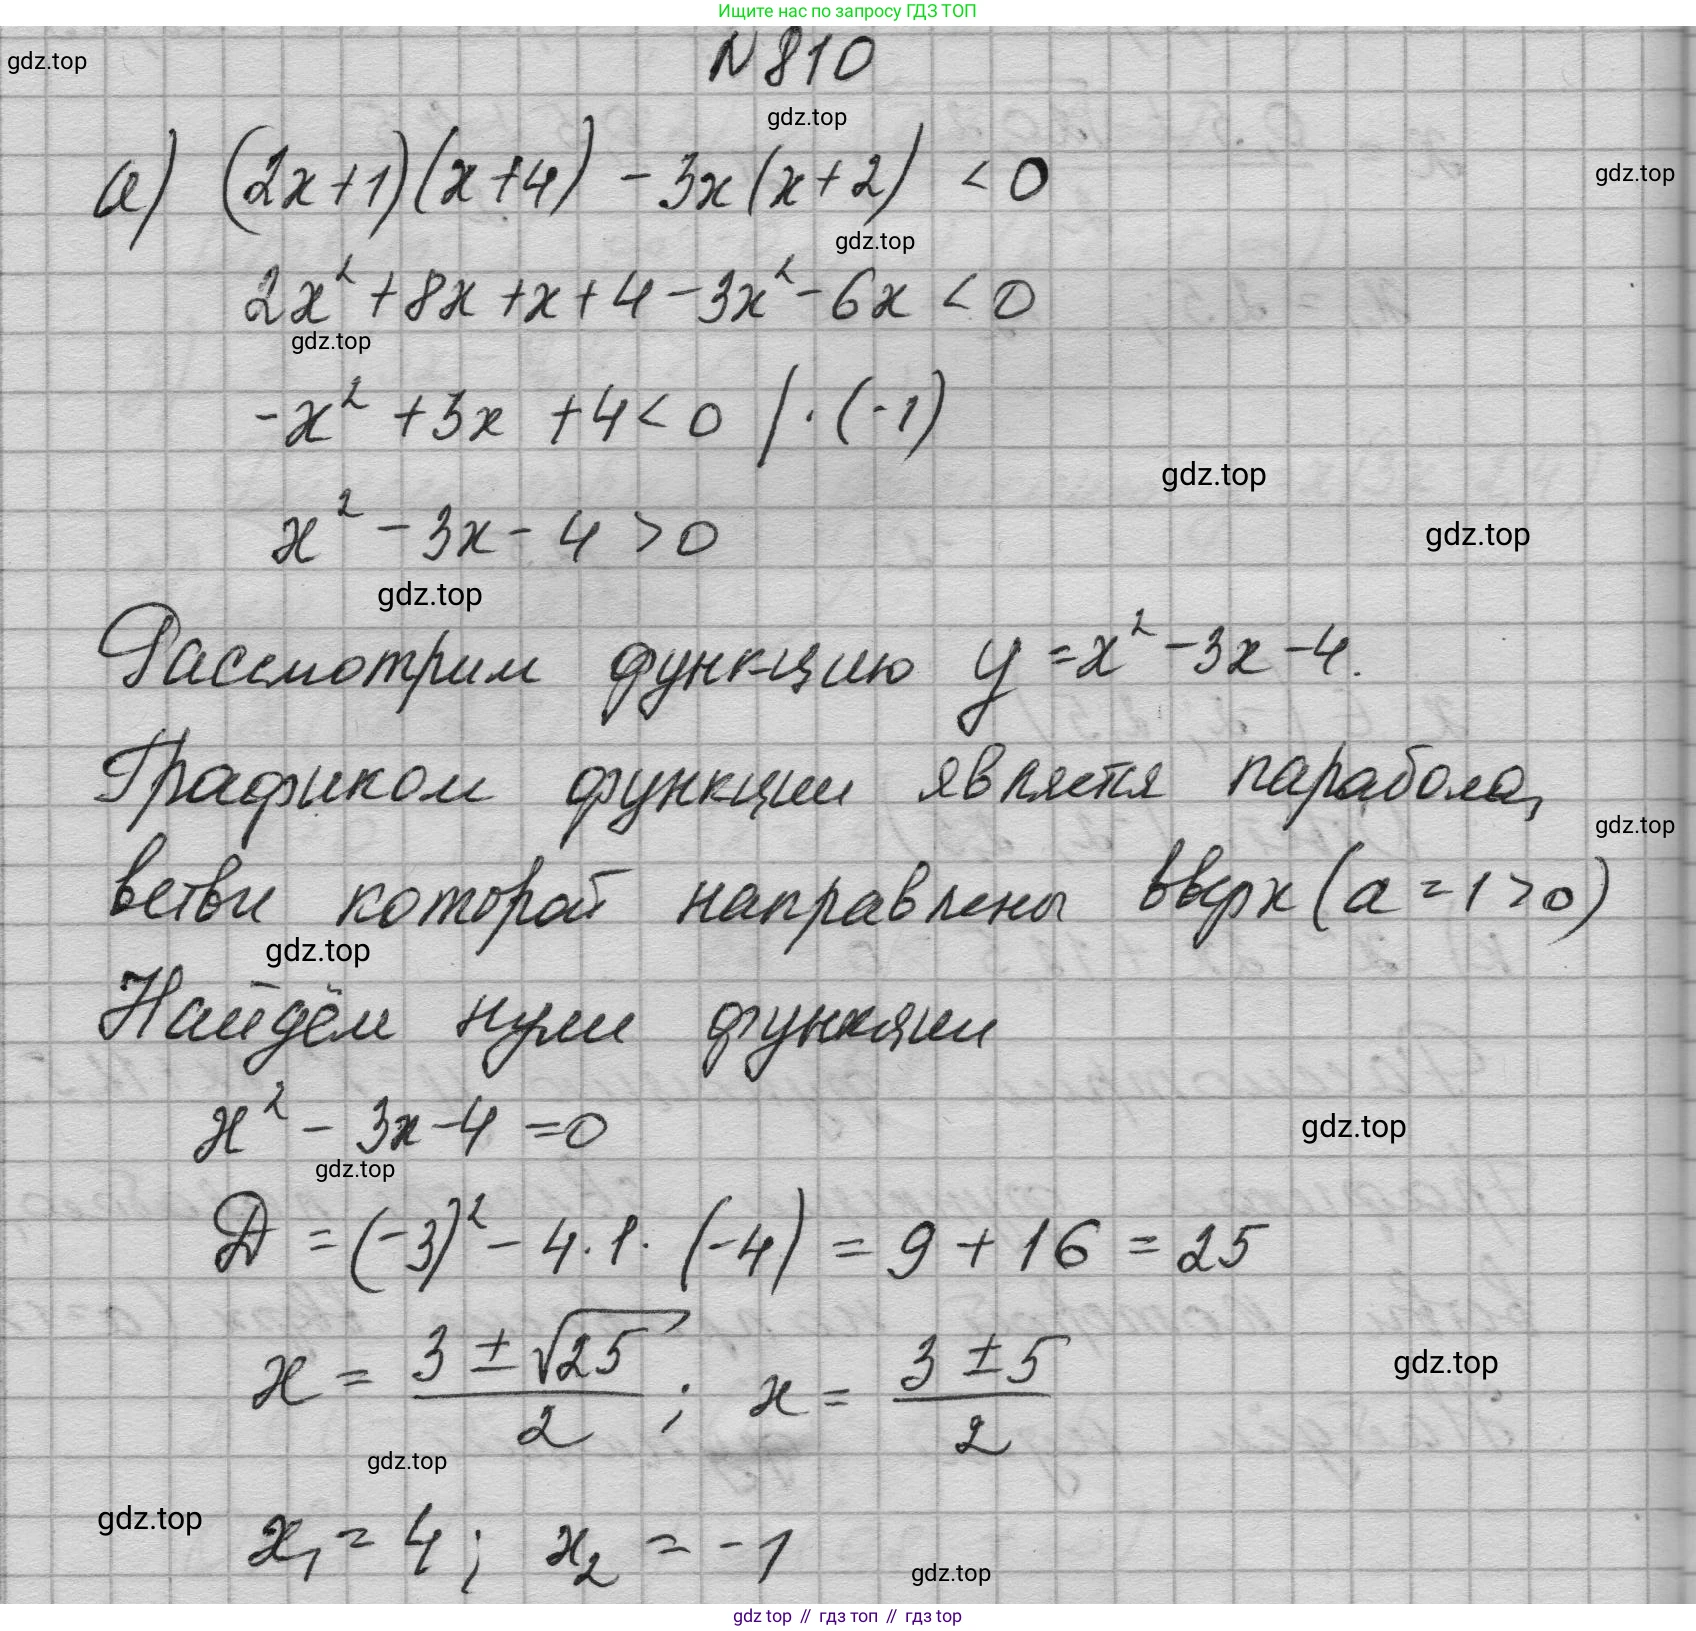 Ищите нас по запросу ГДЗ ТОП
N 810
gdz.top
gdz.top
а) (2x+1)(x+4) - 3x(x+2) < 0
gdz.top
gdz.top
2x² + 8x + x + 4 - 3x² - 6x < 0
gdz.top
-x² + 3x + 4 < 0 / · (-1)
gdz.top
x² - 3x - 4 > 0
gdz.top
gdz.top
Рассмотрим функцию y = x² - 3x - 4.
Графиком функции является парабола,
gdz.top
ветви которой направлены вверх (a = 1 > 0)
gdz.top
Найдём нули функции
x² - 3x - 4 = 0
gdz.top
gdz.top
D = (-3)² - 4 · 1 · (-4) = 9 + 16 = 25
x = (3 ± √25)/2 ; x = (3 ± 5)/2
gdz.top
gdz.top
gdz.top
x₁ = 4 ; x₂ = -1
gdz.top
gdz top // гдз топ // гдз top